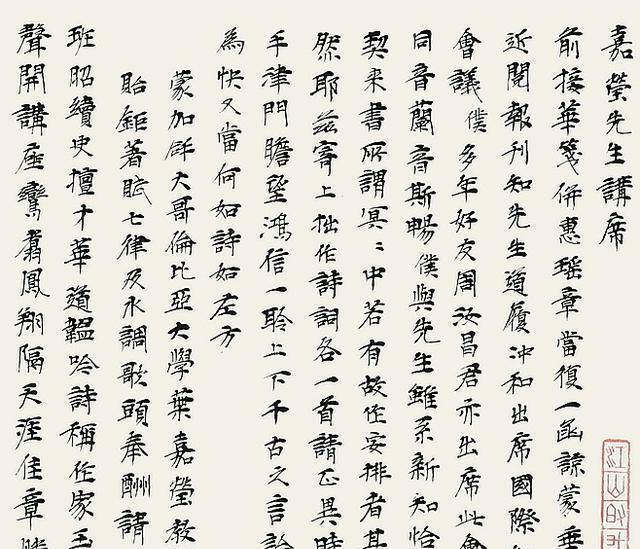 嘉瑩先生講席
前接華箋併惠瑤章當復一函諒蒙垂
近閱報刊知先生道履沖和出席國際
會議僕多年好友周汝昌君亦出席此會
同音蘭音斯暢僕與先生雖系新知恰
契来書所謂冥冥中若有故作安排者其
然耶茲寄上拙作詩詞各一首請正異時
手津門瞻望鴻信一聆上下千古之言論
為快又當何如詩如左方
蒙加拿大哥倫比亞大學葉嘉瑩教
貽鉅著賦七律及水調歌頭奉酬請
班昭續史擅才華道韞吟詩稱作家玉
聲開講座鸞翥鳳翔隔天涯佳章
江山